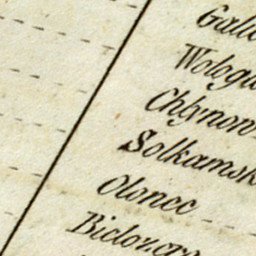 Gallc
Wologu
Chlynow
Solkamsk
Olonec
Bielozero